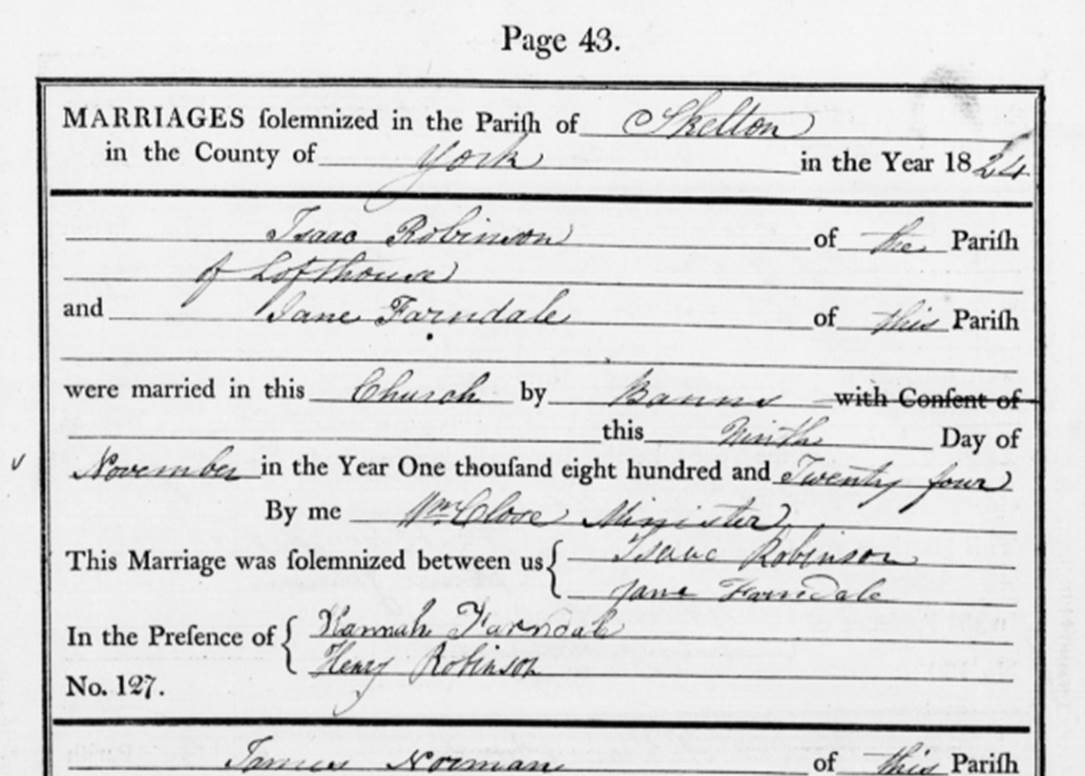 Page 43.
MARRIAGES ſolemnized in the Pariſh of Skelton
in the County of York in the Year 1824
Isaac Robinson of the Pariſh
of Lofthouse
and Jane Farndale of this Pariſh
were married in this Church by Banns with Conſent of
this Ninth Day of
November in the Year One thouſand eight hundred and Twenty four
By me Wm Close Minister
This Marriage was ſolemnized between us { Isaac Robinson
Jane Farndale
In the Preſence of { Hannah Farndale
Henry Robinson
No. 127.
James Norman of this Pariſh